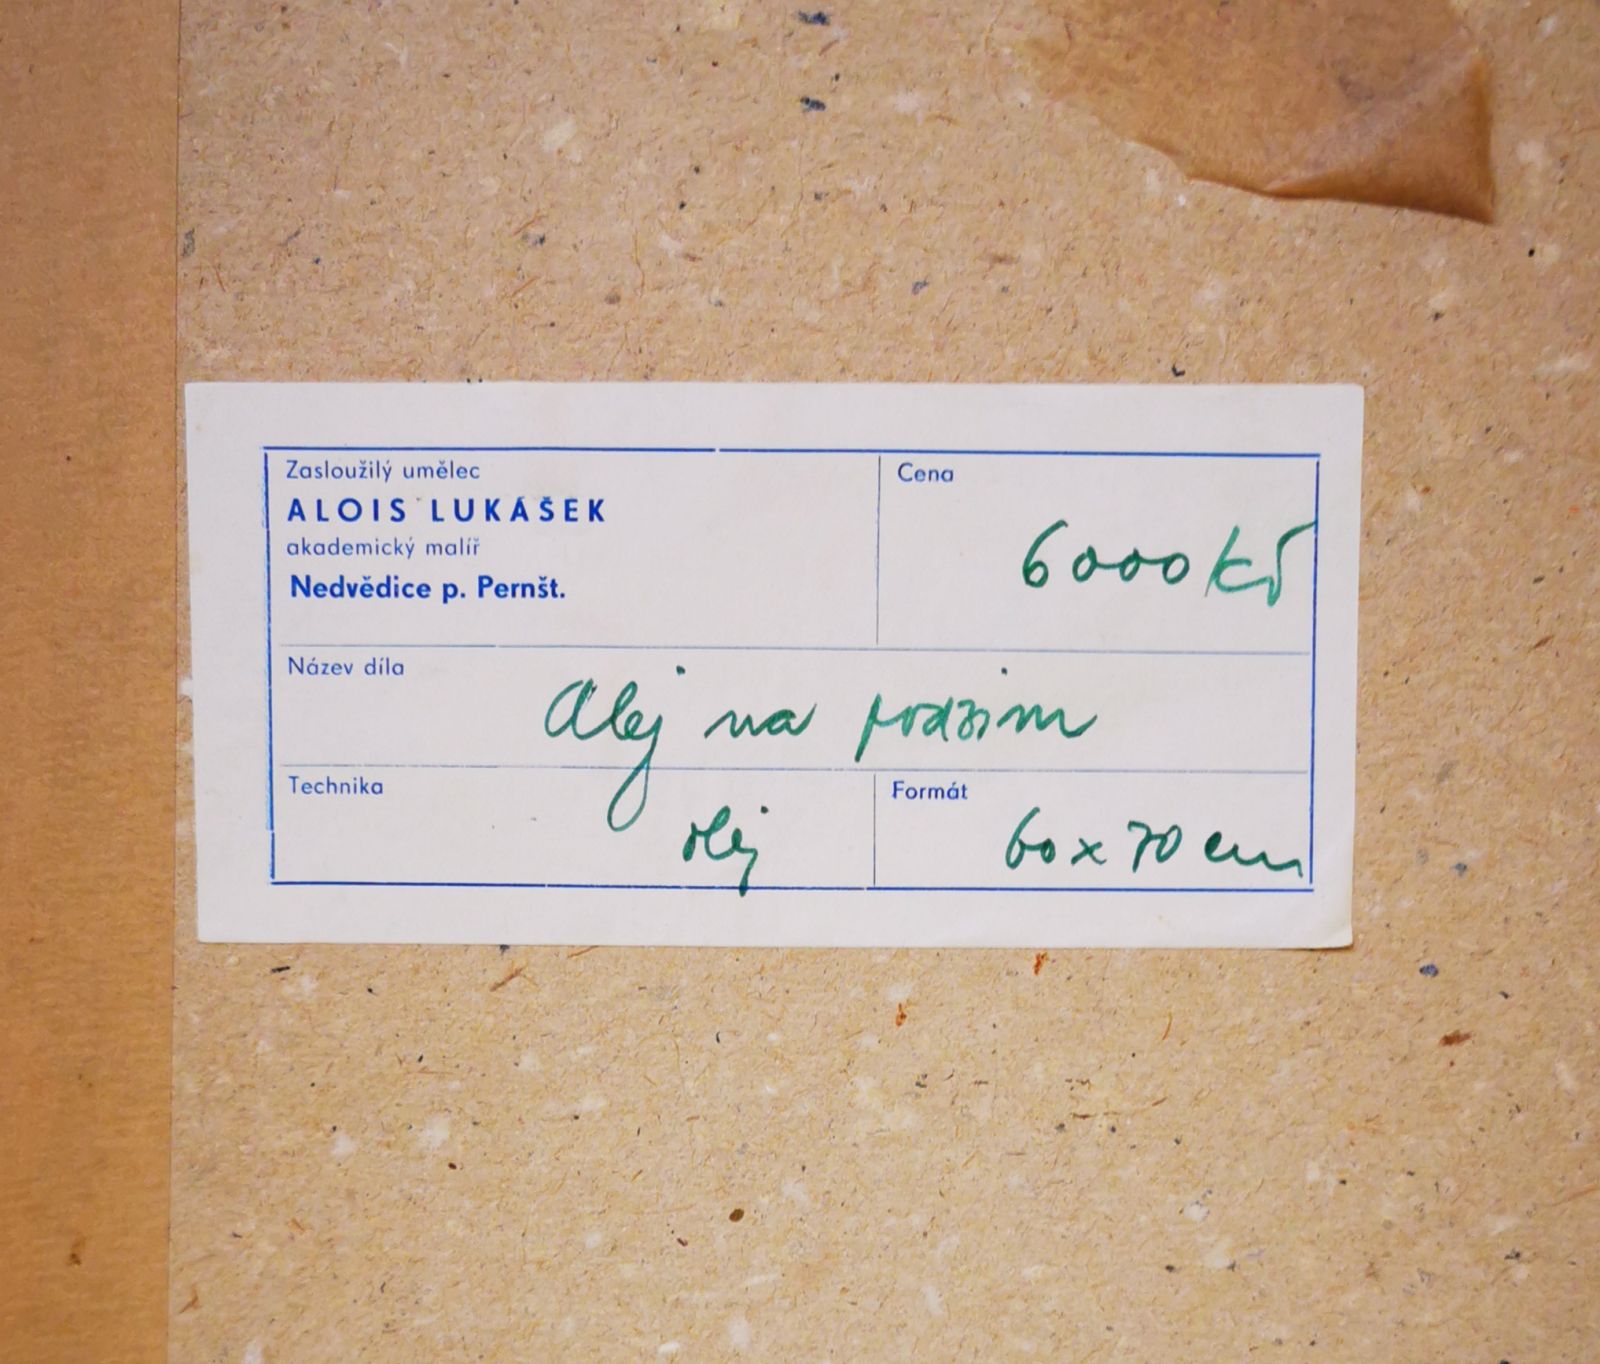 Zasloužilý umělec
ALOIS LUKÁŠEK
akademický malíř
Nedvědice p. Pernšt.
Cena
6000 Kčs
Název díla
Alej na podzim
Technika
olej
Formát
60 x 70 cm